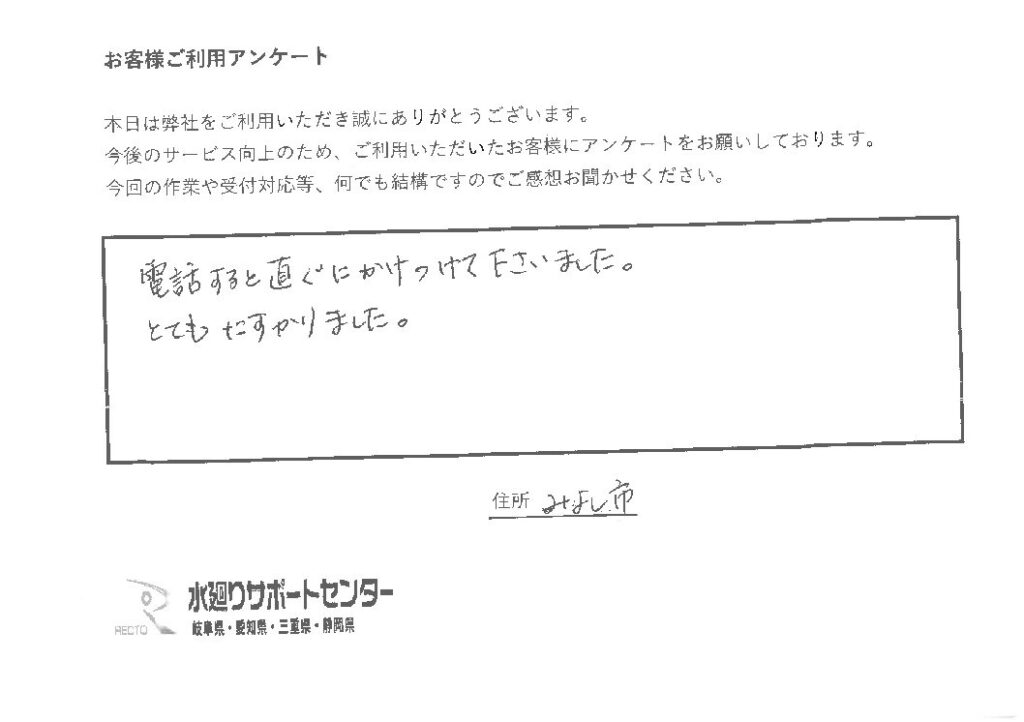 お客様ご利用アンケート
本日は弊社をご利用いただき誠にありがとうございます。
今後のサービス向上のため、ご利用いただいたお客様にアンケートをお願いしております。
今回の作業や受付対応等、何でも結構ですのでご感想お聞かせください。
電話すると直ぐにかけつけて下さいました。
とてもたすかりました。
住所 みよし市
水廻りサポートセンター
RECTO 岐阜県・愛知県・三重県・静岡県